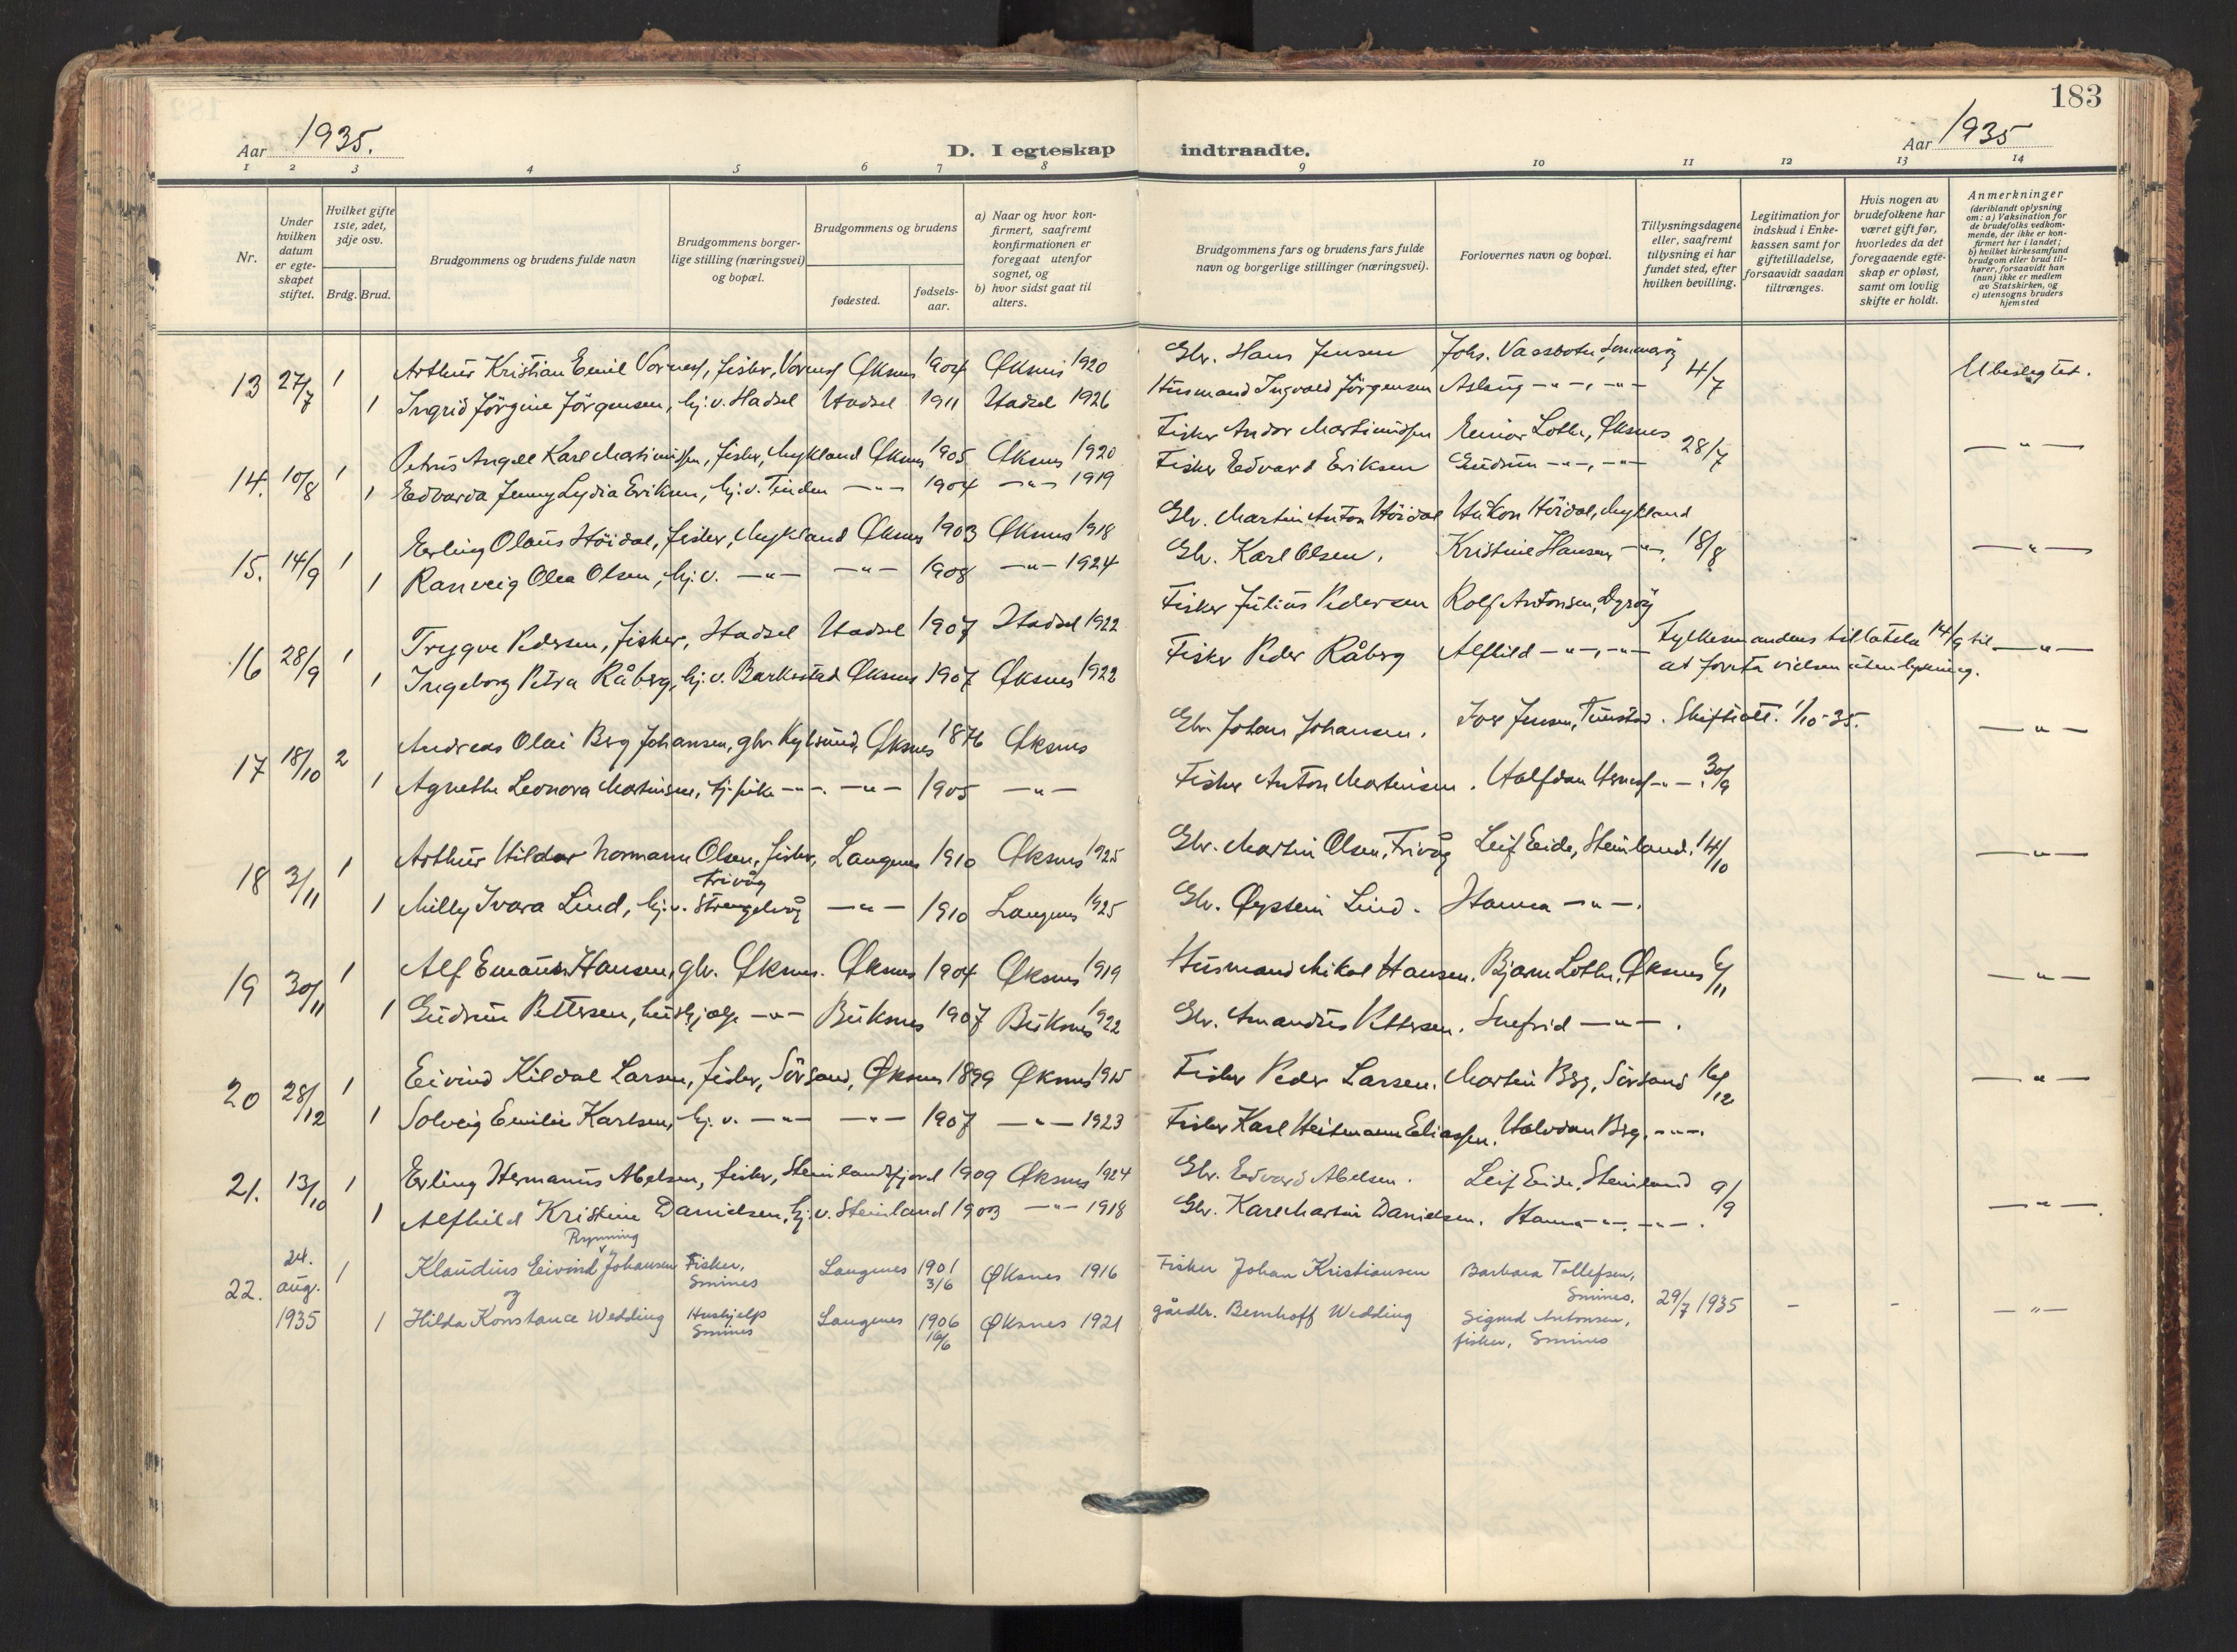 183
Aar 1935.
D. I egteskap indtraadte.
Aar 1935
1 2 3 4 5 6 7 8 9 10 11 12 13 14
Nr.
Under hvilken datum er egteskapet stiftet.
Hvilket gifte 1ste, 2det, 3dje osv.
Brdg. Brud.
Brudgommens og brudens fulde navn
Brudgommens borgerlige stilling (næringsvei) og bopæl.
Brudgommens og brudens
fødested.
fødselsaar.
a) Naar og hvor konfirmert, saafremt konfirmationen er foregaat utenfor sognet, og
b) hvor sidst gaat til alters.
Brudgommens fars og brudens fars fulde navn og borgerlige stillinger (næringsvei).
Forlovernes navn og bopæl.
Tillysningsdagene eller, saafremt tillysning ei har fundet sted, efter hvilken bevilling.
Legitimation for indskud i Enkekassen samt for giftetilladelse, forsaavidt saadan tiltrænges.
Hvis nogen av brudefolkene har været gift før, hvorledes da det foregaaende egteskap er opløst, samt om lovlig skifte er holdt.
Anmerkninger (deriblandt oplysning om: a) Vaksination for de brudefolks vedkommende, der ikke er konfirmert her i landet; b) hvilket kirkesamfund brudgom eller brud tilhører, forsaavidt han (hun) ikke er medlem av Statskirken, og c) utensogns bruders hjemsted
13 27/7 1 Arthur Kristian Emil Vornes, fisker, Vornes Øksnes 1904 Øksnes 1920 Gbr. Hans Jensen Johs. Vassbotn, Sommarøy 4/7 Ubeslegtet.
1 Ingrid Jörgine Jörgensen, hj. v. Hadsel Hadsel 1911 Hadsel 1926 Husmand Ingvald Jörgensen Aslaug -"-, -"-
14. 10/8 1 Petrus Angell Karl Martinussen, fisker, Nykland Øksnes 1905 Øksnes 1920 Fisker Andor Martinussen Einar Lothe, Øksnes 28/7 -"-
1 Edvarda Jenny Lydia Eriksen, hj. v. Tinden -"- 1904 -"- 1919 Fisker Edvard Eriksen Gudrun -"-, -"-
15. 14/9 1 Erling Olaus Höidal, fisker, Nykland Øksnes 1903 Øksnes 1918 Gbr. Martin Anton Höidal Håkon Höidal, Nykland 18/8 -"-
1 Ranveig Olea Olsen, hj. v. -"- -"- 1908 -"- 1924 Gbr. Karl Olsen. Kristine Hansen -"-.
16 28/9 1 Trygve Pedersen, fisker, Hadsel Hadsel 1907 Hadsel 1922 Fisker Julius Pedersen Rolf Antonsen, Dyröy Fylkesmandens tillatelse 14/9 til -"-
1 Ingeborg Petra Råberg, hj. v. Barkestad Øksnes 1907 Øksnes 1922 Fisker Peder Råberg Alfhild -"-, -"- at foreta vielsen uten lysning.
17 18/10 2 Andreas Olai Berg Johansen, gbr. Kylsund, Øksnes 1876 Øksnes Gbr. Johan Johansen. Jens Jensen, Tunstad. Skifteatt. 1/10-35. -"-
1 Agnethe Leonora Martinsen, hj. pike -"-. -"- 1905 -"- Fisker Anton Martinsen. Halfdan -"-. 30/9
18 3/11 1 Arthur Hildor Normann Olsen, fisker, Frivåg Langenes 1910 Øksnes 1925 Gbr. Martin Olsen, Frivåg Leif Eide, Steinland. 14/10 -"-
1 Milly Ivara Lind, hj. v. Strengelvåg -"- 1910 Langenes 1925 Gbr. Øystein Lind. Hanna -"-.
19 30/11 1 Alf Emaus Hansen, gbr. Øksnes. Øksnes 1904 Øksnes 1919 Husmand Mikal Hansen. Bjarne Lothe, Øksnes 6/11 -"-
1 Gudrun Pettersen, hushjelp -"- Buksnes 1907 Buksnes 1922 Gbr. Amandus Pettersen. Snefrid -"-.
20 28/12 1 Eivind Kildal Larsen, fisker, Sörsand, Øksnes 1899 Øksnes 1915 Fisker Peder Larsen. Martin Berg, Sörsand 16/12 -"-
1 Solveig Emilie Karlsen, hj. v. -"- -"- 1907 -"- 1923 Fisker Karl Heitmann Eliassen. Halvdan Berg. -"-.
21. 13/10 1 Erling Hermanus Abelsen, fisker, Steinlandsfjord 1909 Øksnes 1924 Gbr. Edvard Abelsen. Leif Eide, Steinland 9/9 -"-.
1 Alfhild Kristine Danielsen, hj. v. Steinland 1903 -"- 1918 Gbr. Karl Martin Danielsen. Hanna -"-. -"-.
22. 24. aug. 1935 1 Klaudius Eivind Rynning Johansen Fisker, Smines Langenes 1901 3/6 Øksnes 1916 Fisker Johan Kristiansen Barbara Tollefsen, Smines. 29/7 1935 - - -"-
og
1 Hilda Konstance Wedding Hushjelp Smines Langenes 1906 16/6 Øksnes 1921 gårdbr. Bernhoff Wedding Sigurd Antonsen, fisker, Smines